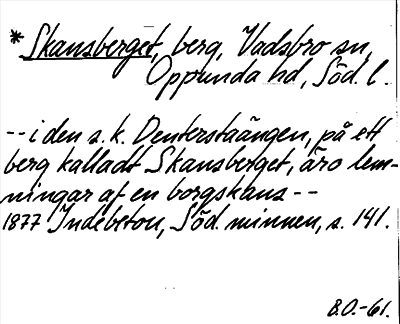 * Skansberget, berg, Vadsbro sn,
Oppunda hd, Söd. l.
-- i den s.k. Denterstaängen, på ett
berg kalladt Skansberget, äro lem-
ningar af en borgskans --
1877 Indebetou, Söd. minnen, s. 141.
B.O.-61.